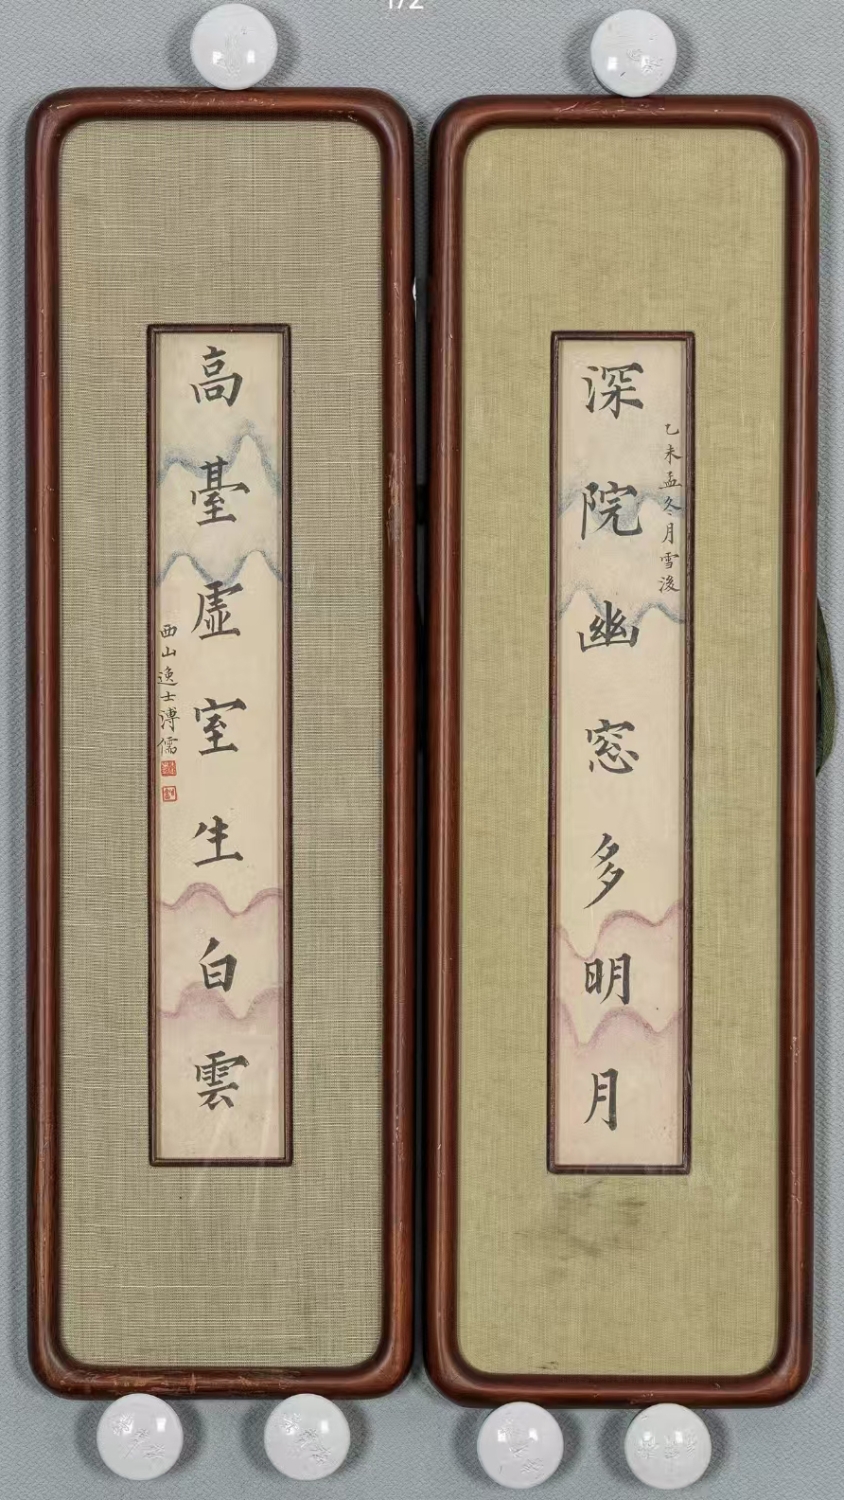 乙未孟冬月雪後
深院幽窓多明月
高臺虛室生白雲
西山逸士溥儒